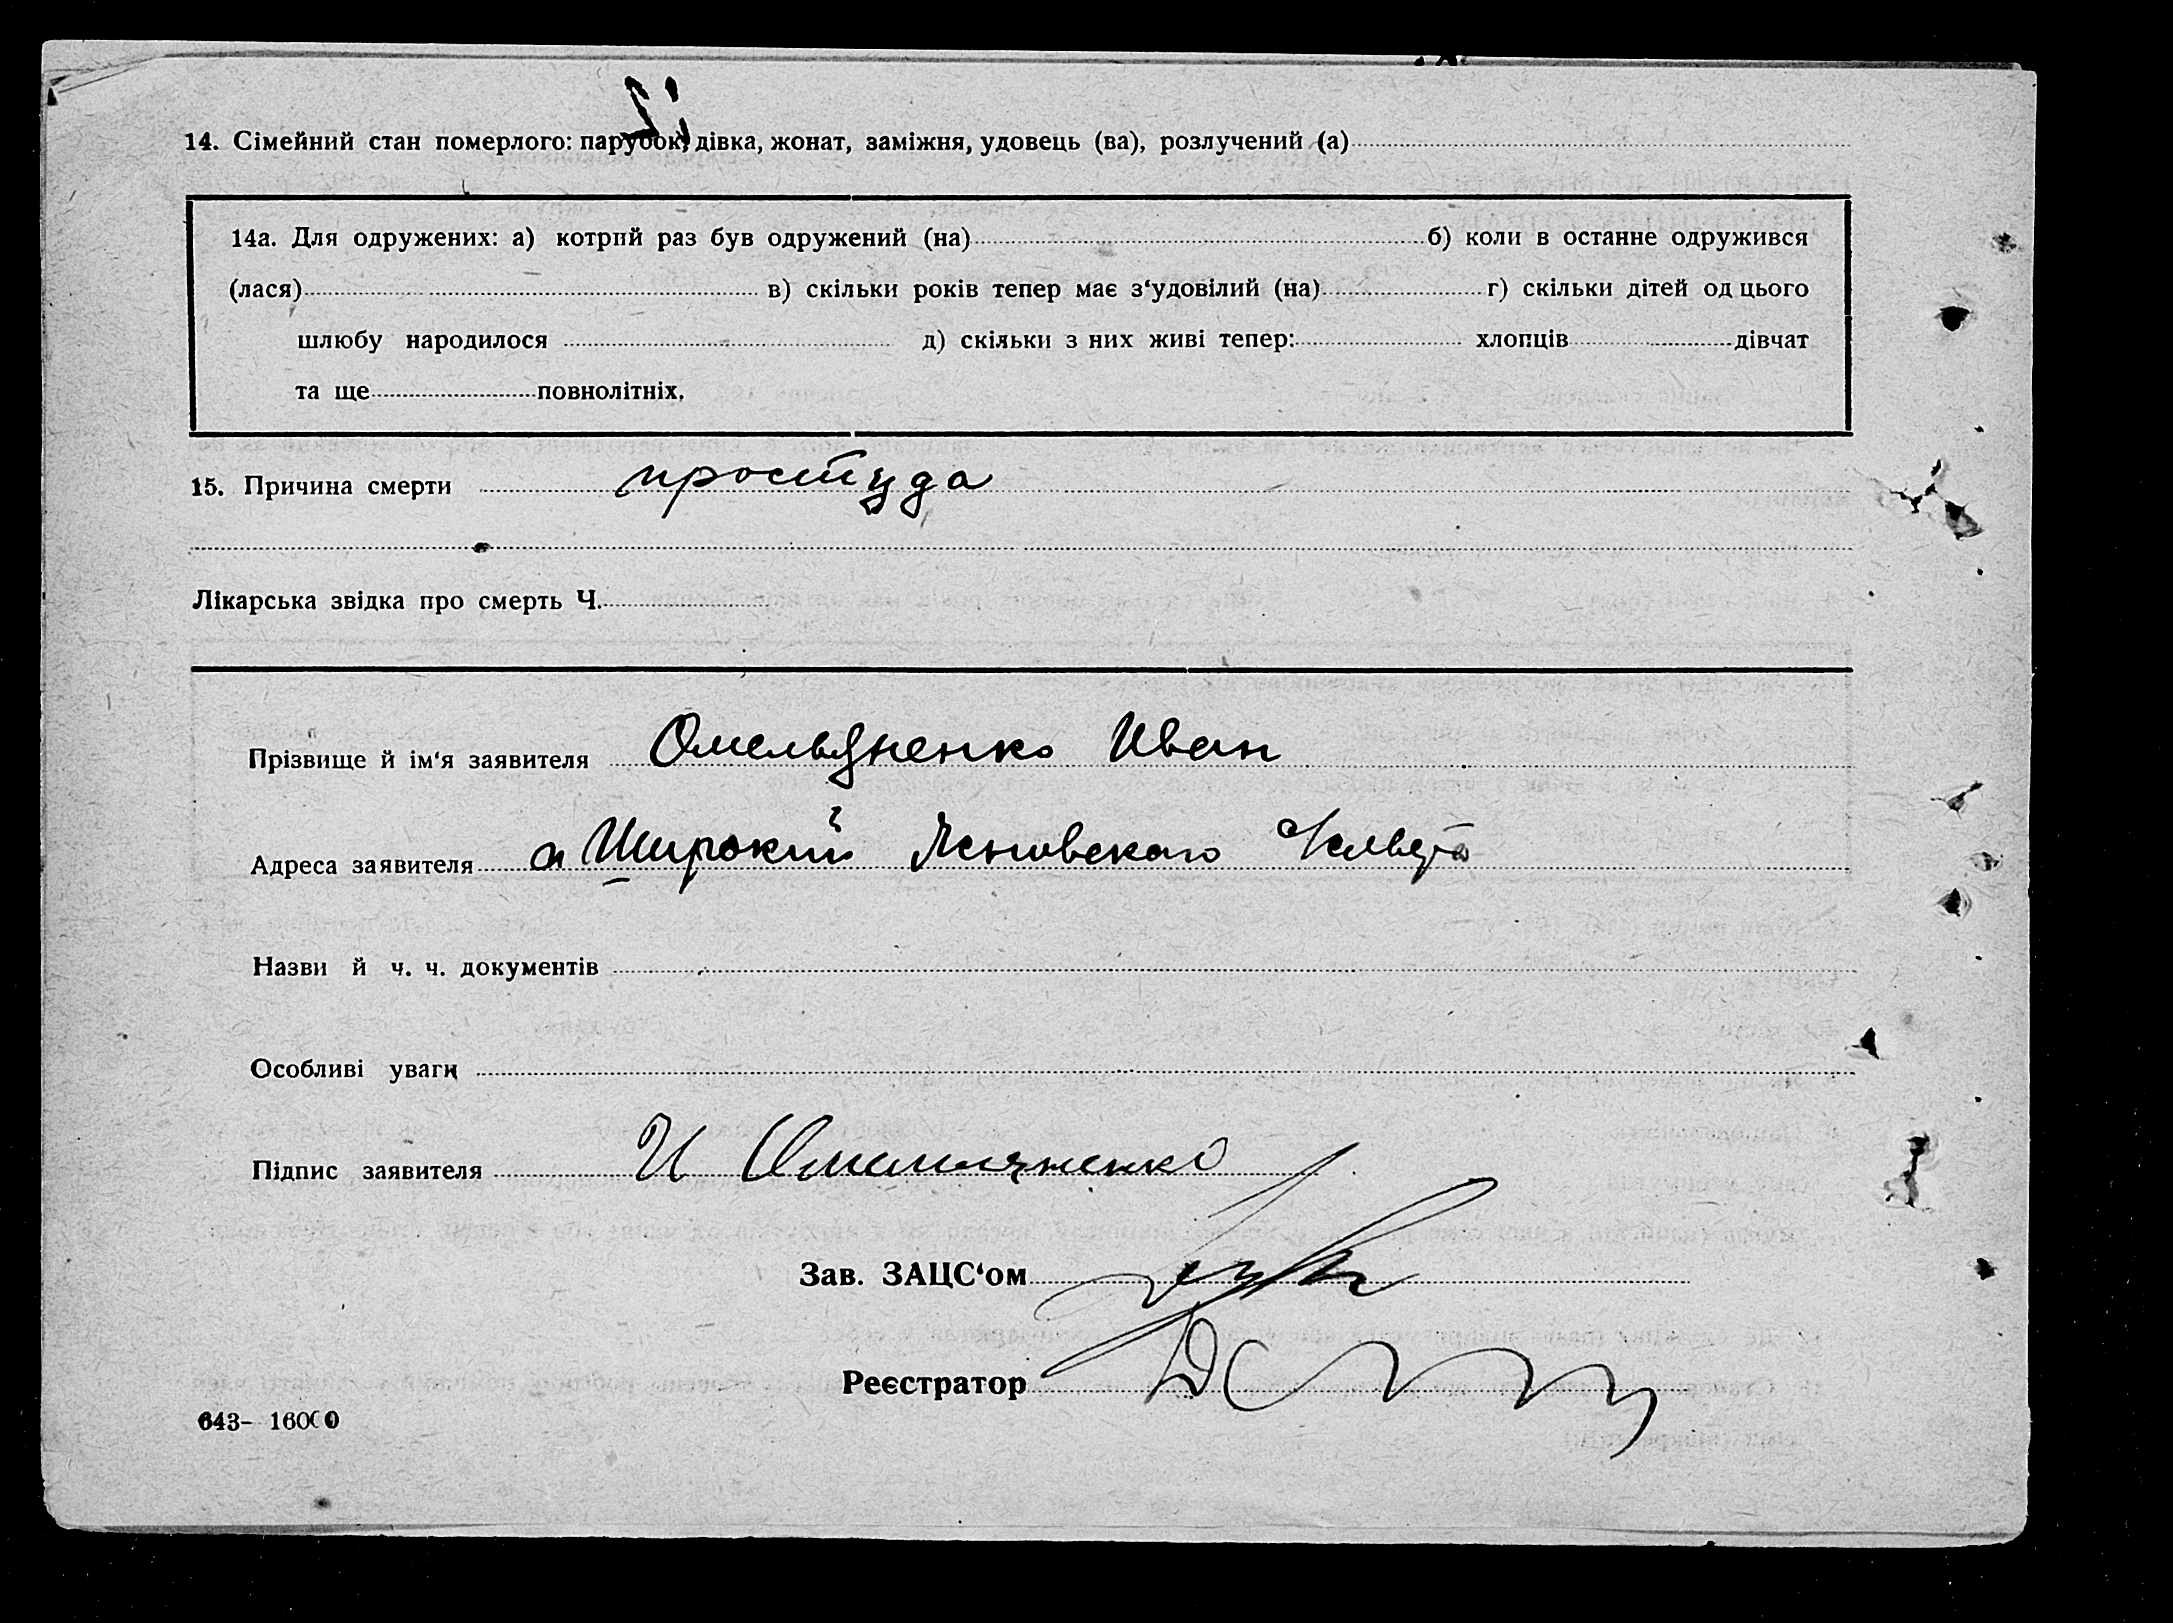 14. Сімейний стан померлого: парубок, дівка, жонат, заміжня, удовець (ва), розлучений (а)
14а. Для одружених: а) котрий раз був одружений (на) б) коли в останне одружився
(лася) в) скільки років тепер має з‘удовілий (на) г) скільки дітей од цього
шлюбу народилося д) скільки з них живі тепер: хлопців дівчат
та ще повнолітніх.
15. Причина смерти простуда
Лікарська звідка про смерть Ч.
Прізвище й ім‘я заявителя Омельяненко Иван
Адреса заявителя Широкий
Назви й ч. ч. документів
Особливі уваги
Підпис заявителя И Омельяненко
Зав. ЗАЦС‘ом
Реєстратор
643– 16000